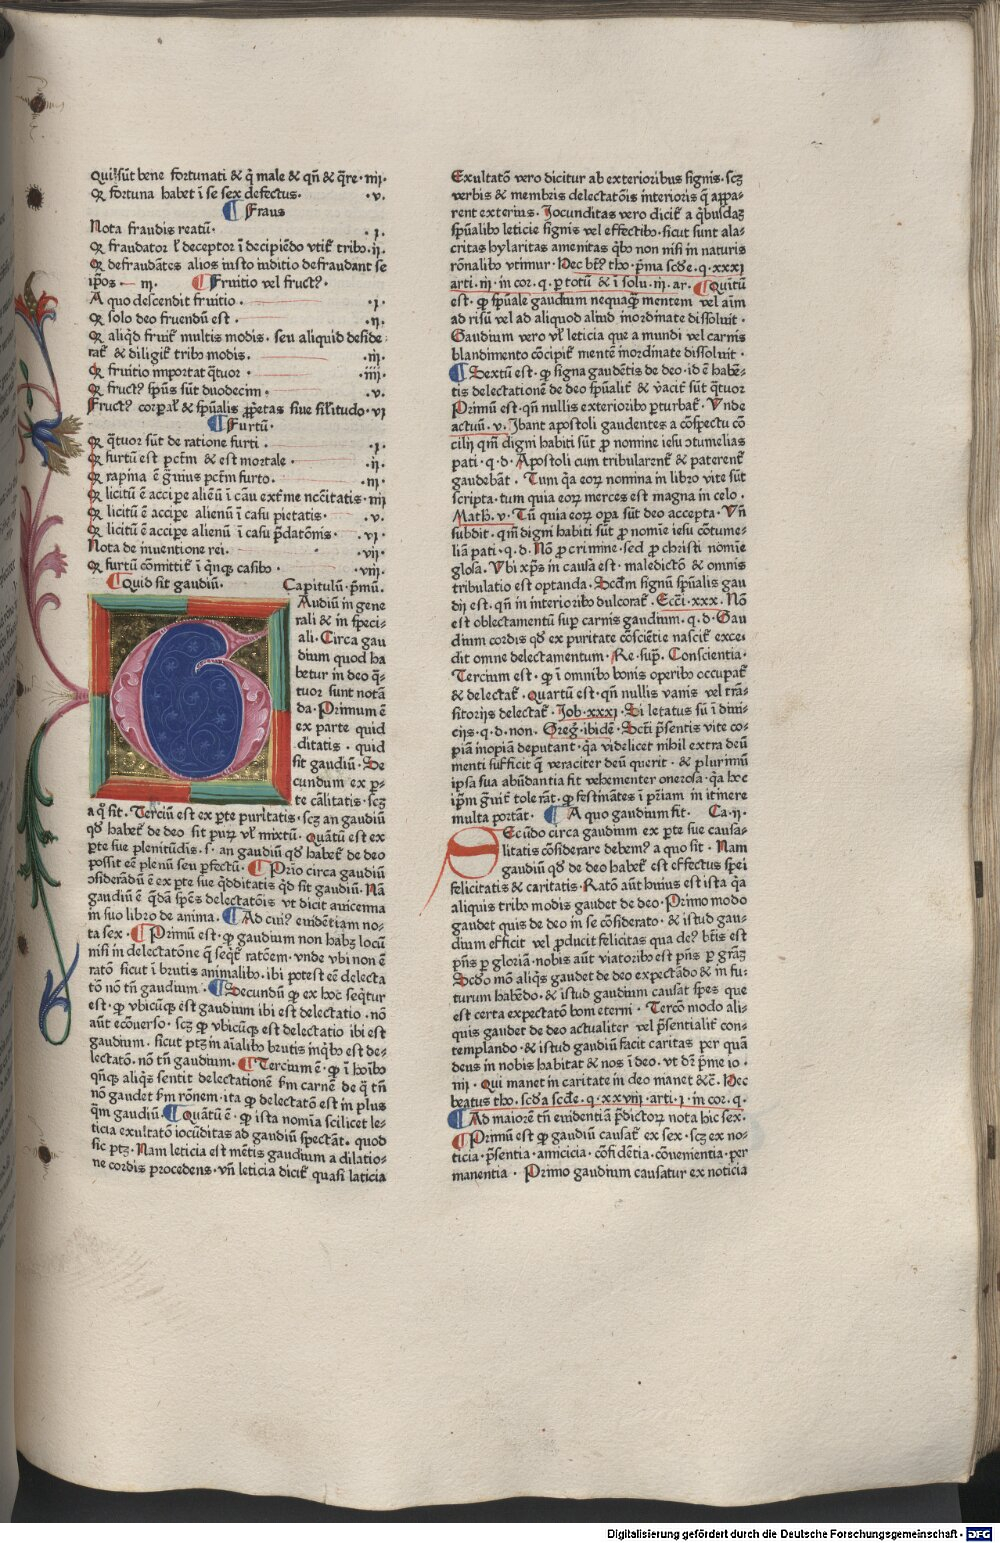 Qui sūt bene fortunati & q̄ male & qn̄ & q̄re· iiij·
Qꝫ fortuna habet ī se sex defectus· ·v·
¶ Fraus
Nota fraudis reatū· ·i·
Qꝫ fraudator ł deceptor ī decipiēdo vtit᷑ tribo· ·ij·
Qꝫ defraudātes alios iusto iuditio defraudant se
ipōs — iij· ¶ Fruitio vel fruct᷒·
A quo descendit fruitio · ·i·
Qꝫ solo deo fruendū est · ·ij·
Qꝫ aliqd fruit᷑ multis modis· seu aliquid deside
rat᷑ & diligit᷑ tribo modis· ·iij·
Qꝫ fruitio importat q̄tuor · ·iiij·
Qꝫ fruct᷒ spūs sūt duodecim · ·v·
Fruct᷒ corꝑał & spūalis ꝓp̄etas siue silitudo· vi
¶ Furtū·
Qꝫ q̄tuor sūt de ratione furti · ·i·
Qꝫ furtū est pctm̄ & est mortale · ·ij·
Qꝫ rapina ē g̃uius pctm̄ furto· ·iij·
Qꝫ licitū ē accipe aliēū ī cāu extr̄me nccitatis· iiij
Qꝫ licitū ē accipe alienū ī casu pietatis· ·v·
Qꝫ licitū ē accipe alienū ī casu p̄datōnis· ·vi·
Nota de inuentione rei· ·vij·
Qꝫ furtū cōmittit᷑ ī qnqꝫ casibo · ·viij·
¶ Quid sit gaudiū· Capitulū· pmū·
Audiū in gene
rali & in speci-
ali· Circa gau
dium quod ha
betur in deo q̄-
tuor sunt notā
da· Primum ē
ex parte quid
ditatis · quid
sit gaudiū· Se
cundum ex ꝑ-
te cālitatis· scꝫ
a q̊ fit· Terciū est ex ꝑte puritatis· scꝫ an gaudiū
qd̄ habet᷑ de deo sit puꝝ vł mixtū· Quātū est ex
ꝑte sue plenitudis· s· an gaudiū qd̄ habet᷑ de deo
possit eē plenū seu ꝑfectū· ¶ Prīo circa gaudiū
ↄsiderādū ē ex ꝑte sue qdditatis qd sit gaudiū· Nā
gaudiū ē qdā spēs delectatōis vt dicit auicenna
in suo libro de anima· ¶ Ad cui᷒ euidētiam no-
ta sex· ¶ Primū est· ꝙ gaudium non habꝫ locū
nisi in delectatōne q̄ seqt᷑ ratōem· vnde vbi non ē
ratō sicut ī brutis animalibo· ibi potest eē delecta
tō nō tn̄ gaudium· ¶ Secundū ꝙ ex hoc seqtur
est· ꝙ vbicūqꝫ est gaudium ibi est delectatio· nō
aūt ecōuerso· scꝫ ꝙ vbicūqꝫ est delectatio ibi est
gaudium· sicut ptꝫ in aīalibo brutis inqbo est de-
lectatō· nō tn̄ gaudium· ¶ Tercium ē· ꝙ ī hoībo
qn̄qꝫ aliqs sentit delectationē fm carnē de q̄ tn̄
nō gaudet fm rōnem· ita ꝙ delectatō est in plus
q̄m gaudiū· ¶ Quātū ē· ꝙ ista nomīa scilicet le-
ticia exultatō iocūditas ad gaudiū spectāt· quod
sic ptꝫ· Nam leticia est mētis gaudium a dilatio-
ne cordis procedens· vn̄ leticia dicit᷑ quasi laticia
Exultatō vero dicitur ab exterioribus signis· scꝫ
verbis & membris delectatōis interioris q̄ appa-
rent exterius· Jocunditas vero dicit᷑ a qbusdaꝫ
spūalibo leticie signis vel effectibo· sicut sunt ala-
critas hylaritas amenitas qbo non nisi in naturis
rōnalibo vtimur· Hec bt᷒ tho· pma scde· q· xxxi
arti· iij· in cor· q· ꝑ totū & ī solu· iij· ar· ¶ Quītū
est· ꝙ spūale gaudium nequaqꝫ mentem vel aīm
ad risū vel ad aliquod aliud inordinate dissoluit·
Gaudium vero vł leticia que a mundi vel carnis
blandimento cōcipit᷑ mentē inordinate dissoluit·
¶ Sextū est· ꝙ signa gaudētis de deo· id ē habē-
tis delectationē de deo spūalit᷑ & vacit᷑ sūt q̄tuor
Primū est· qn̄ nullis exterioribo ꝑturbat᷑· Vnde
actuū· v· Ibant apostoli gaudentes a cōspectu cō
cilij qm̄ digni habiti sūt ꝓ nomine iesu ↄtumelias
pati· q· d· Apostoli cum tribularent᷑ & paterent᷑
gaudebāt· Tum q̄a eoꝝ nomina in libro vite sūt
scripta· tum quia eoꝝ merces est magna in celo·
Math· v· Tū quia eoꝝ oꝑa sūt deo accepta· Vn̄
subdit· qm̄ digni habiti sūt ꝓ nomīe iesu cōtume-
liā pati· q· d· Nō ꝓ crimine· sed ꝓ christi nomīe
glosa· Vbi xp̄s in causa est· maledictō & omnis
tribulatio est optanda· Scdm signū spūalis gau
dij est· qn̄ in interioribo dulcorat᷑· Eccī· xxx· Nō
est oblectamentū suꝑ carnis gaudium· q· d· Gau
dium cordis qd̄ ex puritate cōscientie nascit᷑ exce-
dit omne delectamentum· Re· sup· Conscientia·
Tercium est· ꝙ ī omnibo bonis operibo occupat᷑
& delectat᷑· Quartū est· qn̄ nullis vanis vel trā-
sitorijs delectat᷑· Job· xxxi· Si letatus sū ī diui-
cijs· q· d· non· Greg· ibidē· Scti p̄sentis vite co-
piā inopiā deputant· q̄a videlicet nihil extra deū
menti sufficit q̄ veraciter deū querit· & plurimū
ipsa sua abūdantia fit vehementer onerosa· q̄a hoc
ipm̄ g̃uit᷑ tolerāt· ꝙ festināntes ī p̄riam in itinere
multa portāt· ¶ A quo gaudium fit· Ca· ij·
Secūdo circa gaudium ex ꝑte sue causa-
litatis cōsiderare debem᷒ a quo sit· Nam
gaudiū qd̄ de deo habet᷑ est effectus spei
felicitatis & caritatis· Ratō aūt huius est ista q̄a
aliquis tribo modis gaudet de deo· Primo modo
gaudet quis de deo in se cōsiderato· & istud gau-
dium efficit vel ꝓducit felicitas qua de᷒ btīs est
pn̄s ꝑ gloriā· nobis aūt viatoribo est pn̄s ꝑ grāꝫ
Scdo mō aliqs gaudet de deo expectādo & in fu-
turum habēdo· & istud gaudium causat spes que
est certa expectatō boni eterni · Tercō modo ali-
quis gaudet de deo actualiter vel p̄sentialit᷑ con-
templando· & istud gaudiū facit caritas per quā
deus in nobis habitat & nos ī deo· vt dr̄ pme io·
iiij· Qui manet in caritate in deo manet &c̄· Hec
beatus tho· scda scde· q· xxviij· arti· i· in cor· q·
¶ Ad maiorē tn̄ euidentiā p̄dictoꝝ nota hic sex·
¶ Primū est ꝙ gaudiū causat᷑ ex sex· scꝫ ex no-
ticia· p̄sentia· amicicia· cōfidētia· cōuenientia· per
manentia · Primo gaudium causatur ex noticia
Digitalisierung gefördert durch die Deutsche Forschungsgemeinschaft - DFG